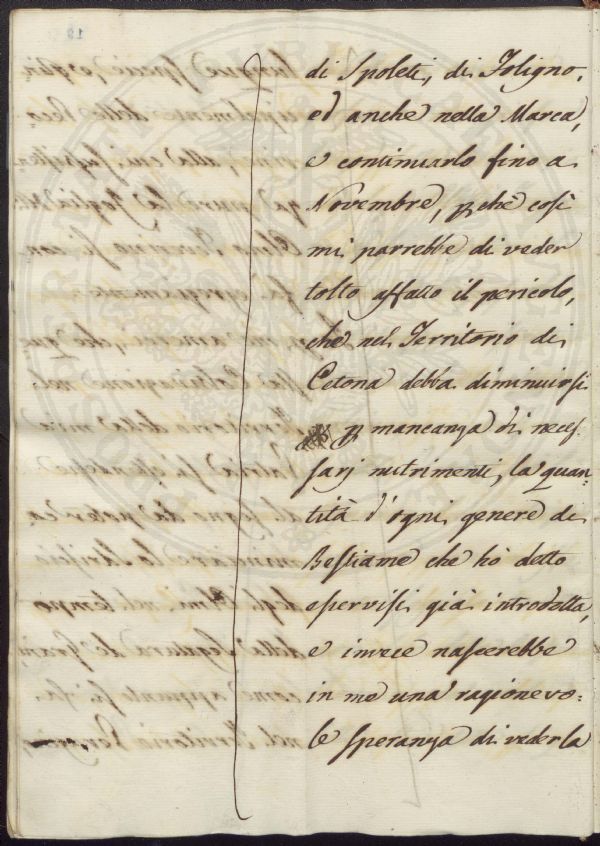 di Spoleti, di Foligno,
ed anche nella Marca,
e continuarlo fino a
Novembre, pchè così
mi parrebbe di veder
tolto affatto il pericolo,
che nel Territorio di
Cetona debba diminuirsi
p mancanza di neces-
sarj nutrimenti, la quan-
tità d'ogni genere di
Bestiame che hò detto
esservisi già introdotta,
e invece nascerebbe
in me una ragionevo-
le speranza di vederla